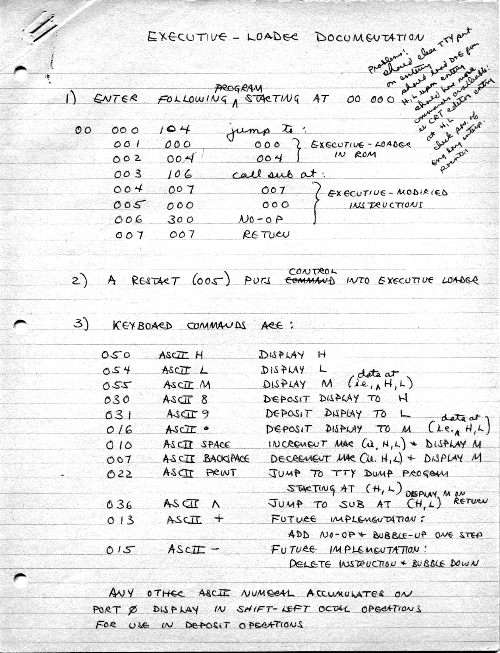 EXECUTIVE - LOADER DOCUMENTATION
Problems:
should clear TTY port
on entering
H, L upon entry
should have more
commands available:
ie CRT editor entry
at H, L
PROGRAM
1) ENTER FOLLOWING ^ STARTING AT 00 000
00 000 104 jump to:
001 000 000 } EXECUTIVE-LOADER
002 004 004 IN ROM
003 106 call sub at:
004 007 007 } EXECUTIVE-MODIFIED
005 000 000 INSTRUCTIONS
006 300 NO-OP
007 007 RETURN
CONTROL
2) A RESTART (005) PUTS COMMAND INTO EXECUTIVE LOADER
3) KEYBOARD COMMANDS ARE:
050 ASCII H DISPLAY H
054 ASCII L DISPLAY L
055 ASCII M DISPLAY M (i.e., ^ data at H, L)
030 ASCII 8 DEPOSIT DISPLAY TO H
031 ASCII 9 DEPOSIT DISPLAY TO L
016 ASCII • DEPOSIT DISPLAY TO M (i.e., ^ data at H, L)
010 ASCII SPACE INCREMENT MAR (i.e., H, L) + DISPLAY M
007 ASCII BACKSPACE DECREMENT MAR (i.e., H, L) + DISPLAY M
022 ASCII PRINT JUMP TO TTY DUMP PROGRAM
STARTING AT (H, L)
036 ASCII ^ JUMP TO SUB AT (H, L) DISPLAY M ON RETURN
013 ASCII + FUTURE IMPLEMENTATION:
ADD NO-OP + BUBBLE-UP ONE STEP
015 ASCII - FUTURE IMPLEMENTATION:
DELETE INSTRUCTION + BUBBLE DOWN
ANY OTHER ASCII NUMERAL ACCUMULATES ON
PORT Ø DISPLAY IN SHIFT-LEFT OCTAL OPERATIONS
FOR USE IN DEPOSIT OPERATIONS